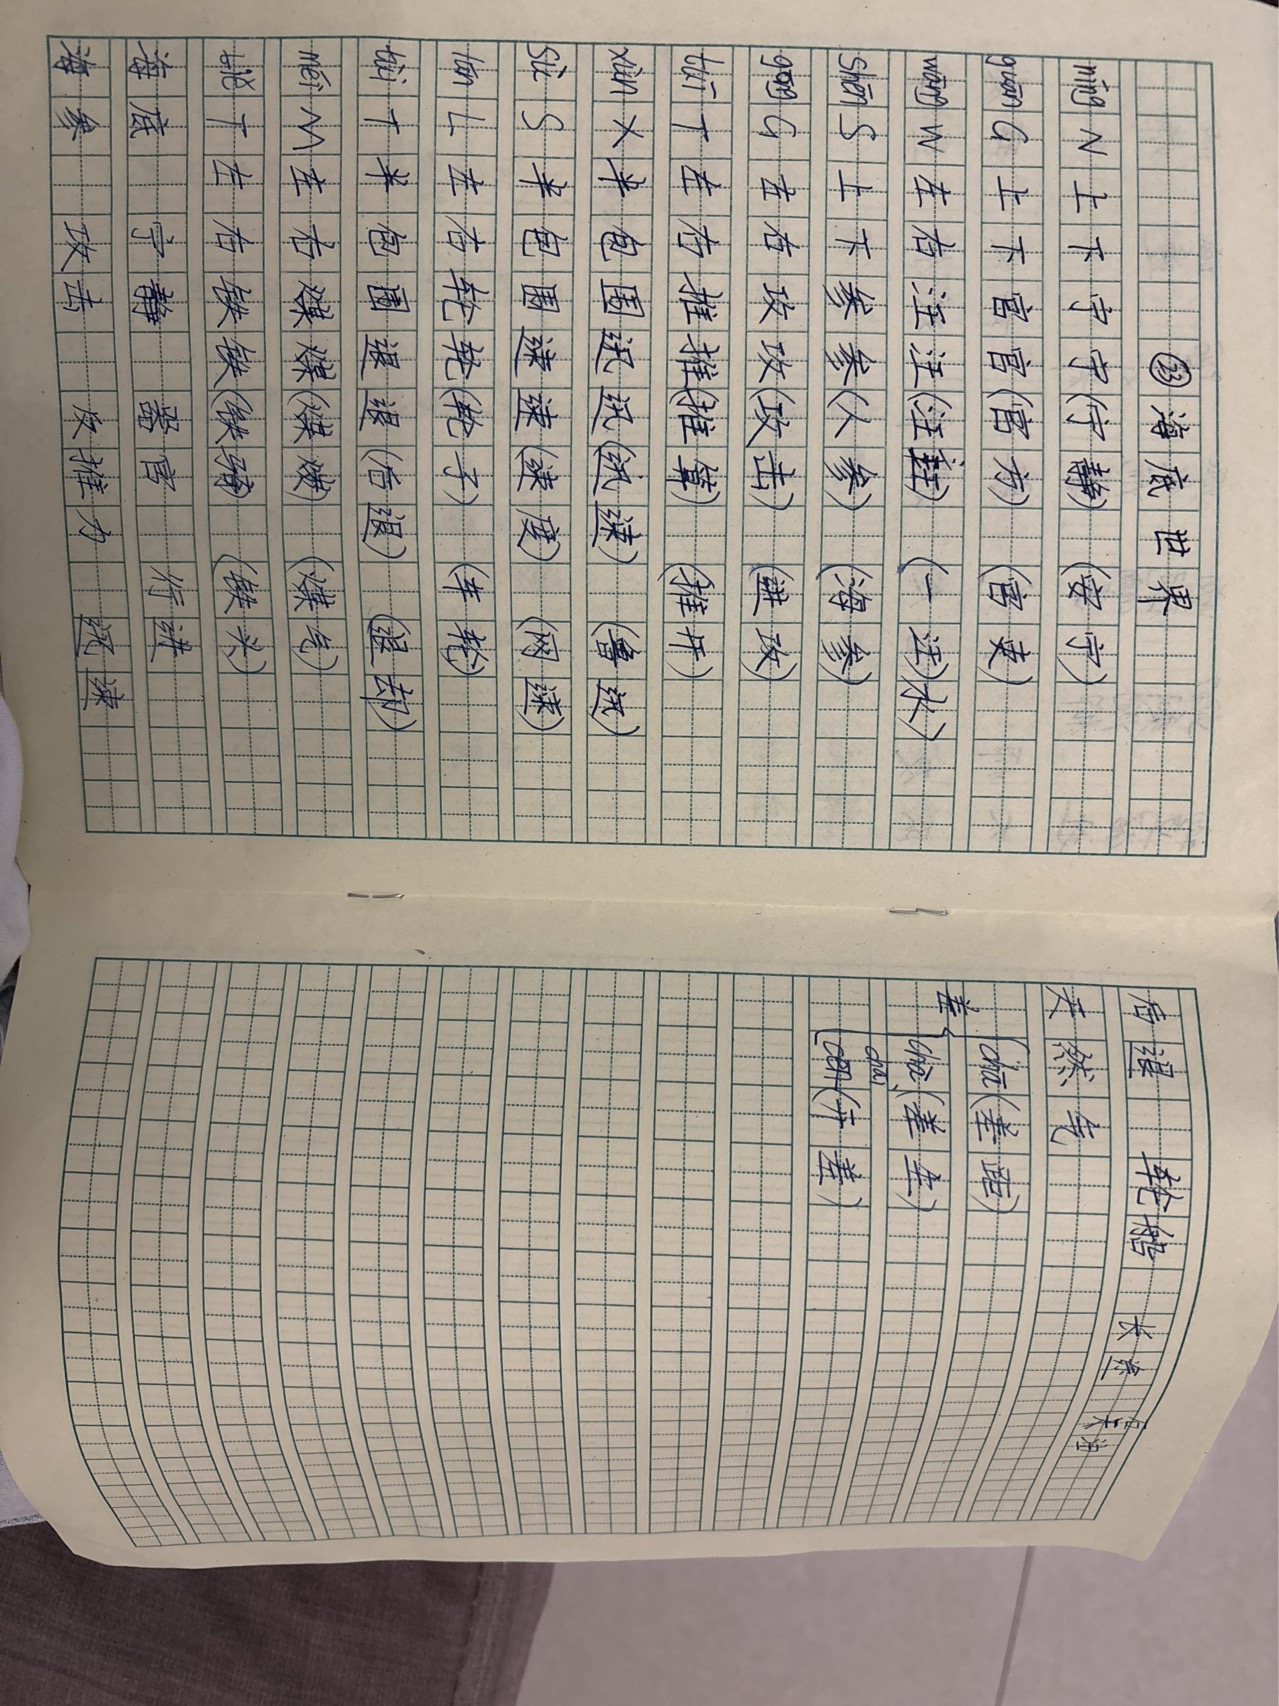 ㉓海底世界
níng N 上下 宁宁(宁静)(安宁)
guān G 上下 官官(官方)(官吏)
wāng W 左右 汪汪(汪洋)(一汪水)
shēn S 上下 参参(人参)(海参)
gōng G 左右 攻攻(攻击)(进攻)
tuī T 左右 推推(推算)(推开)
xùn X 半包围 迅迅(迅速)(鲁迅)
sù S 半包围 速速(速度)(网速)
lún L 左右 轮轮(轮子)(车轮)
tuì T 半包围 退退(后退)(退却)
méi M 左右 煤煤(煤炭)(煤气)
tiě T 左右 铁铁(铁锅)(铁头)
海底 宁静 器官 行进
海参 攻击 反推力 迅速
后退 轮船 长条 石头
天然气
差 chā(差距)
chà(差生)
chāi(出差)